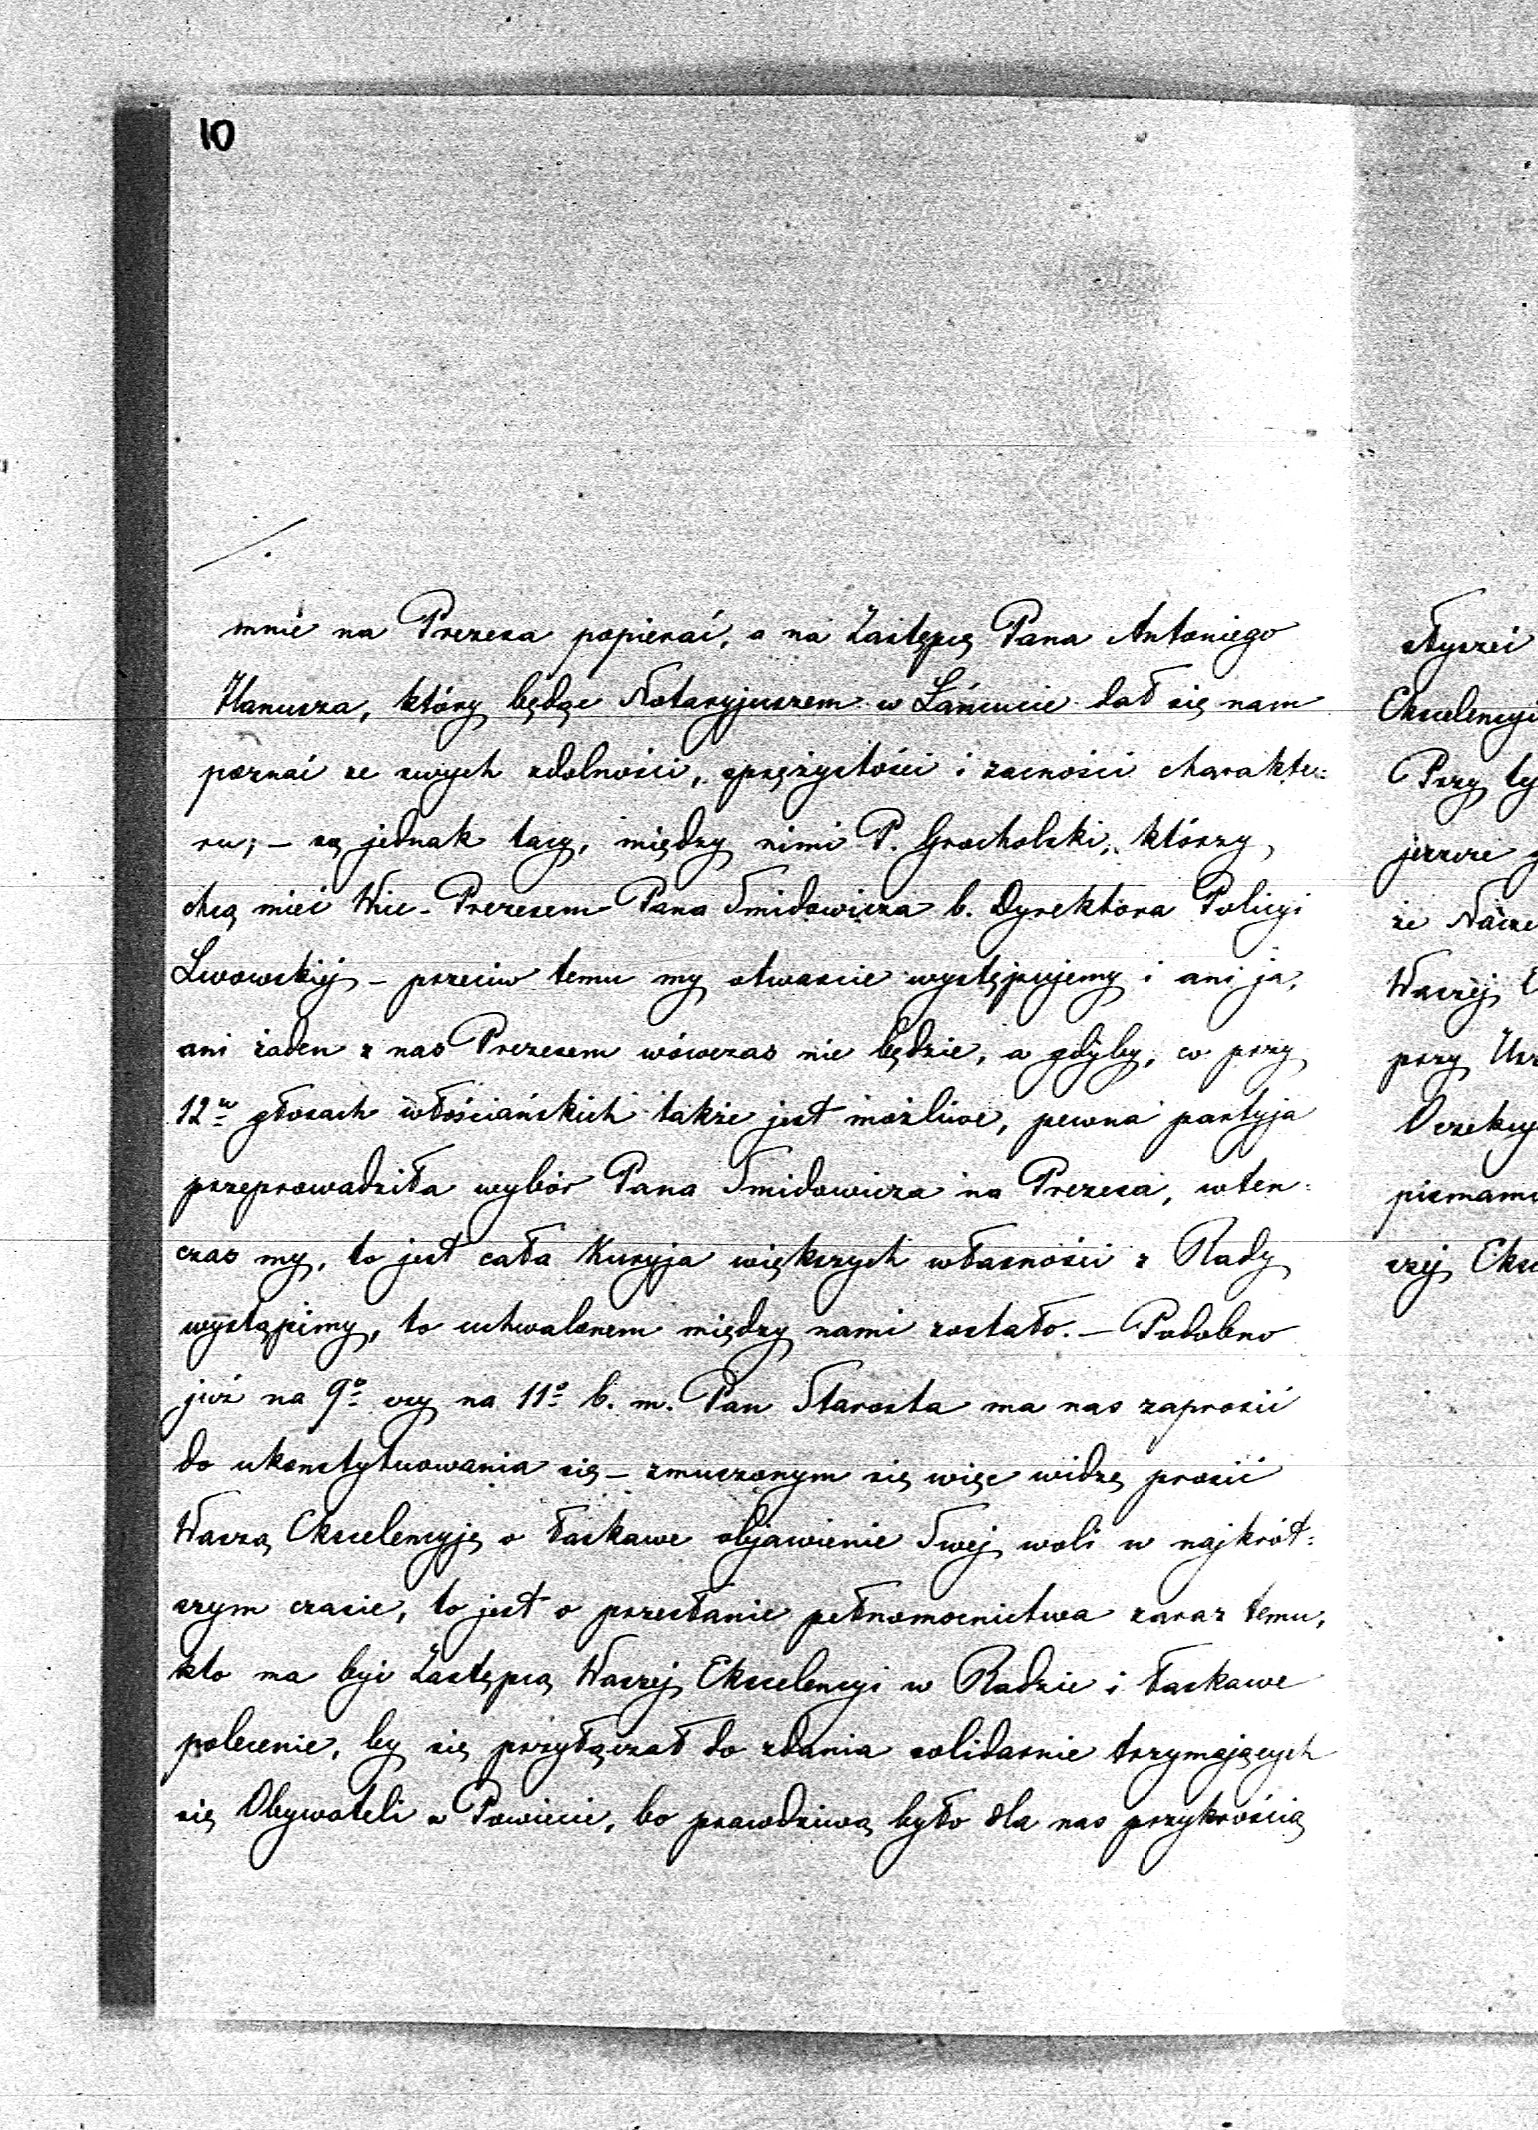 10
mnie na Prezesa popierać, a na Zastępcę Pana Antoniego
Hanusza, który będąc Notaryjuszem w Łańcucie dał się nam
poznać ze swych zdolności, sprężystości i zacności charakte=
ru; – są jednak tacy, między nimi P. Grocholski, którzy
chcą mieć Wice-Prezesem Pana Smidowicza b. Dyrektora Policyi
Lwowskiéj – przeciw temu my otwarcie występujemy i ani ja,
ani żaden z nas Prezesem wówczas nie będzie, a gdyby, co przy
12u głosach włościańskich także jest możliwe, pewna partyja
przeprowadziła wybór Pana Smidowicza na Prezesa, wten=
czas my, to jest cała Kuryja większych własności z Rady
wystąpimy, to uchwalonem między nami zostało. – Podobno
już na 9o czy na 11o b. m. Pan Starosta ma nas zaprosić
do ukonstytuowania się – zmuszonym się więc widzę prosić
Waszą Ekscelencyję o łaskawe objawienie Swej woli w najkrót=
szym czasie, to jest o przesłanie pełnomocnictwa zaraz temu,
kto ma być Zastępcą Waszéj Ekscelencyi w Radzie i łaskawe
polecenie, by się przyłączał do zdania solidarnie trzymających
się Obywateli w Powiecie, bo prawdziwą było dla nas przykrością
słyszeć
Ekscelencyi
Przy ty
jeszcze
że Nacze
Waszéj
przy
Oczekuj
pismami
széj Eksc